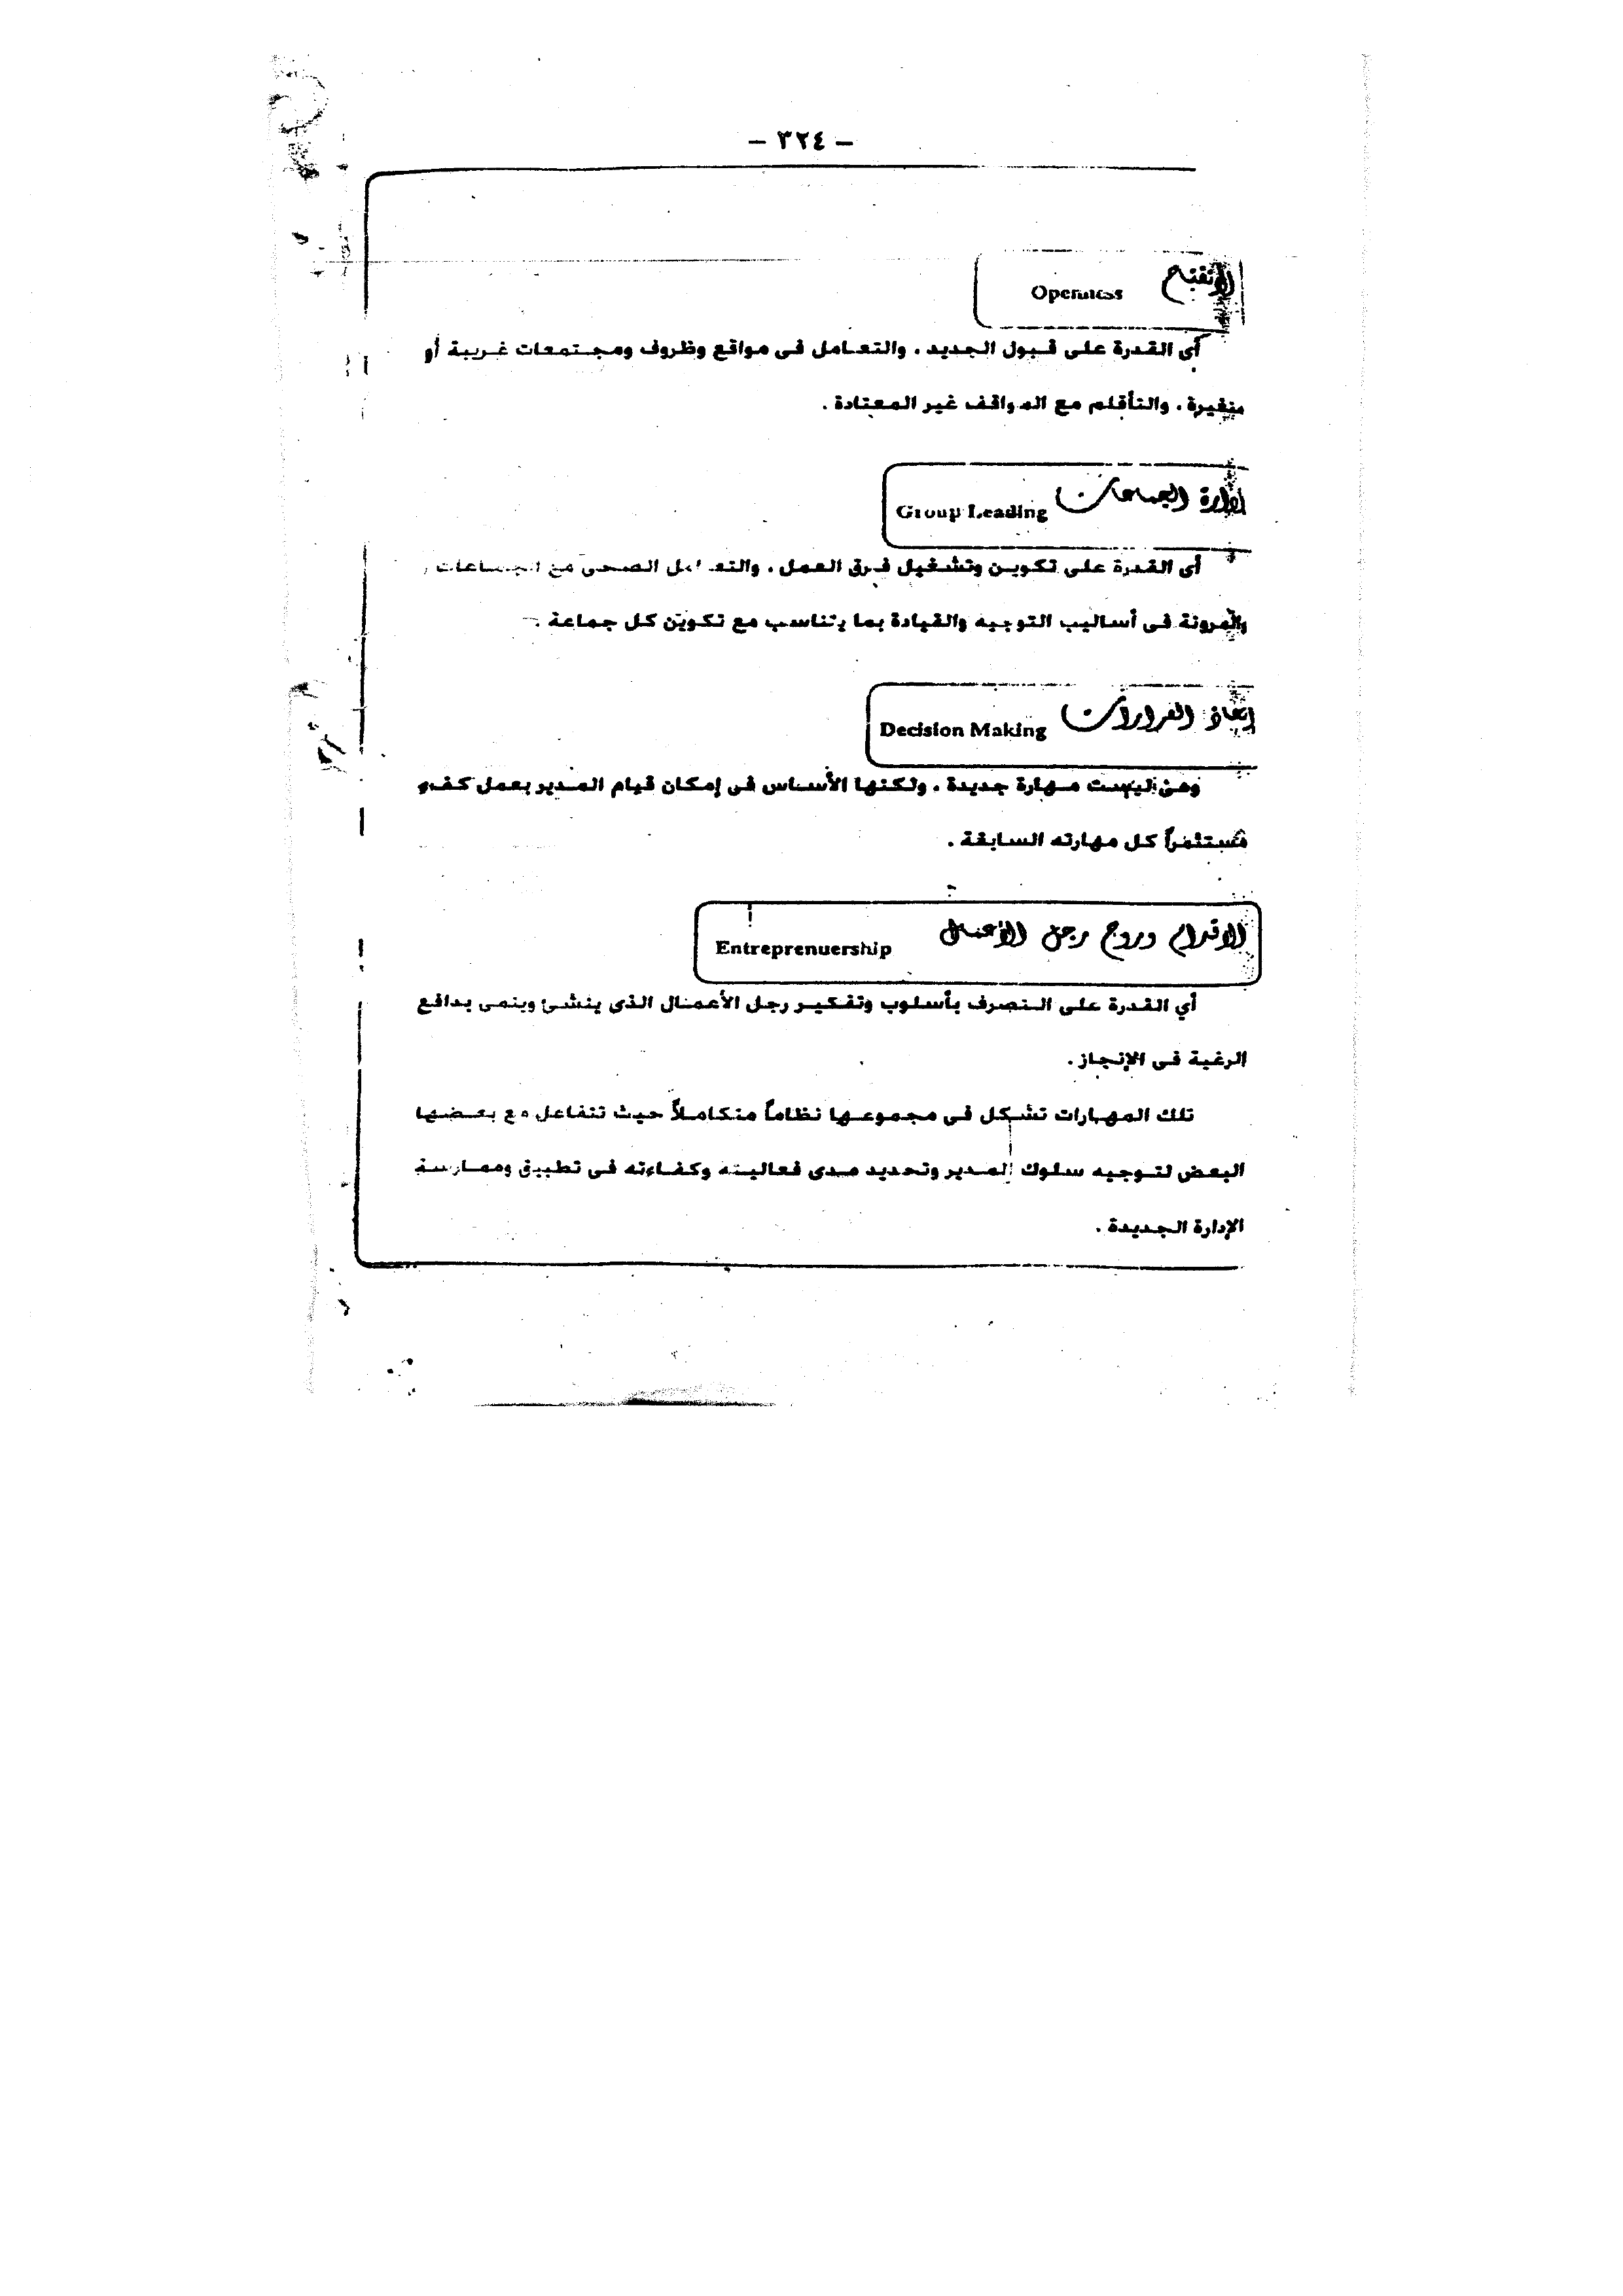 - ٣٢٤ -
الإنفتاح Openness
أى القدرة على قبول الجديد ، والتعامل فى مواقع وظروف ومجتمعات غريبة أو
متغيرة ، والتأقلم مع المواقف غير المعتادة .
إدارة الجماعات Group Leading
أى القدرة على تكوين وتشغيل فرق العمل ، والتعامل الصحى مع الجماعات ,
والمرونة فى أساليب التوجيه والقيادة بما يتناسب مع تكوين كل جماعة .
إتخاذ القرارات Decision Making
وهى ليست مهارة جديدة ، ولكنها الأساس فى إمكان قيام المدير بعمل كفء
مستثمراً كل مهارته السابقة .
الإقدام وروح رجل الأعمال Entreprenuership
أي القدرة على التصرف بأسلوب وتفكير رجل الأعمال الذى ينشئ وينمى بدافع
الرغبة فى الإنجاز .
تلك المهارات تشكل فى مجموعها نظاماً متكاملاً حيث تتفاعل مع بعضها
البعض لتوجيه سلوك المدير وتحديد مدى فعاليته وكفاءته فى تطبيق وممارسة
الإدارة الجديدة .